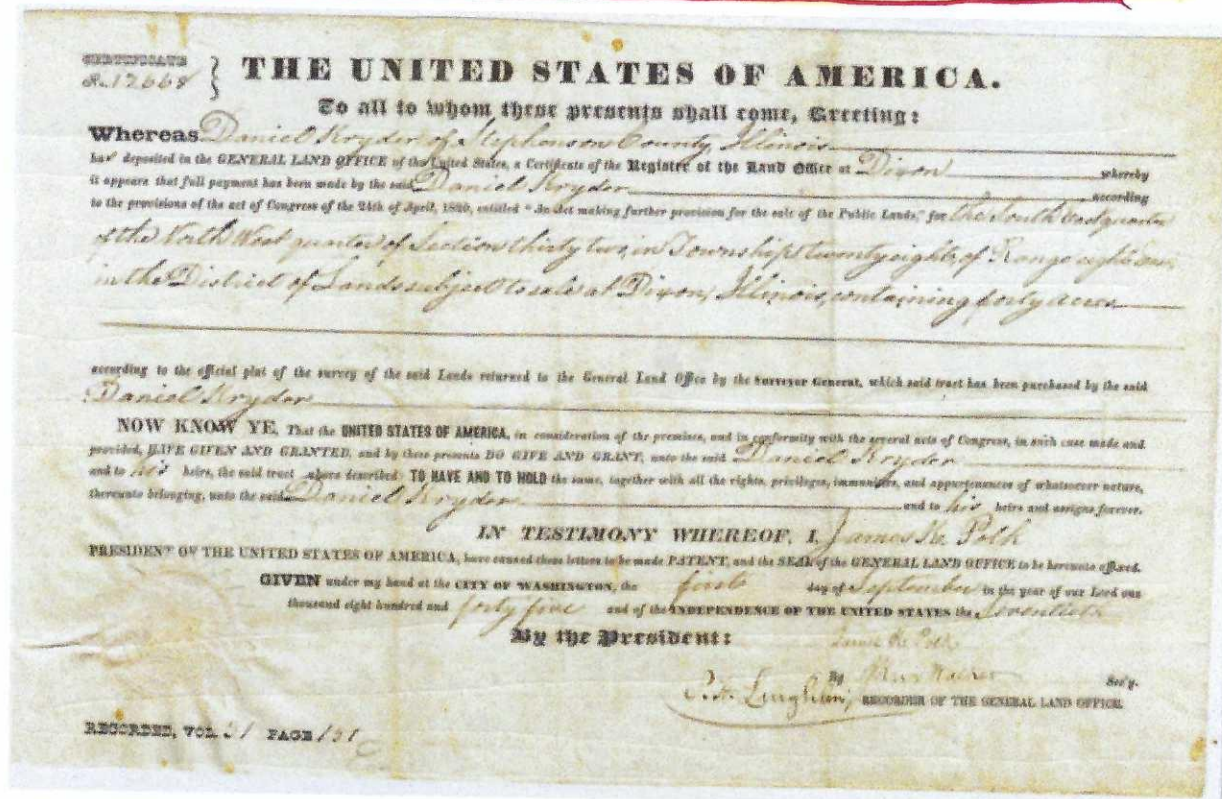 CERTIFICATE
THE UNITED STATES OF AMERICA.
To all to whom these presents shall come, Greeting:
Whereas Daniel Kryder of Stephenson County, Illinois
has deposited in the GENERAL LAND OFFICE of the United States, a Certificate of the Register of the Land Office at Dixon whereby
it appears that full payment has been made by the said Daniel Kryder according
to the provisions of the act of Congress of the 24th of April, 1820, entitled "An Act making further provision for the sale of the Public Lands," for the South quarter
of the North West quarter of Section thirty two, in Township twenty eight, of Range eight
in the District of Lands subject to sale at Dixon, Illinois, containing forty acres
according to the official plat of the survey of the said Lands returned to the General Land Office by the Surveyor General, which said tract has been purchased by the said
Daniel Kryder
NOW KNOW YE, That the UNITED STATES OF AMERICA, in consideration of the premises, and in conformity with the several acts of Congress, in such case made and
provided, HAVE GIVEN AND GRANTED, and by these presents DO GIVE AND GRANT, unto the said Daniel Kryder
and to his heirs, the said tract above described: TO HAVE AND TO HOLD the same, together with all the rights, privileges, immunities, and appurtenances of whatsoever nature,
thereunto belonging, unto the said Daniel Kryder and to his heirs and assigns forever.
IN TESTIMONY WHEREOF, I, James K. Polk
PRESIDENT OF THE UNITED STATES OF AMERICA, have caused these letters to be made PATENT, and the SEAL of the GENERAL LAND OFFICE to be hereunto affixed.
GIVEN under my hand at the CITY OF WASHINGTON, the first day of September in the year of our Lord one
thousand eight hundred and forty five and of the INDEPENDENCE OF THE UNITED STATES the Seventieth
By the President: James K. Polk
By Sec'y.
RECORDER OF THE GENERAL LAND OFFICE.
RECORDED, VOL. PAGE